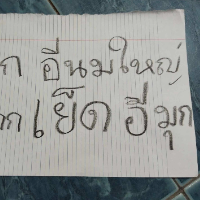 ก อีนมใหญ่
าก เย็ด อีมุก